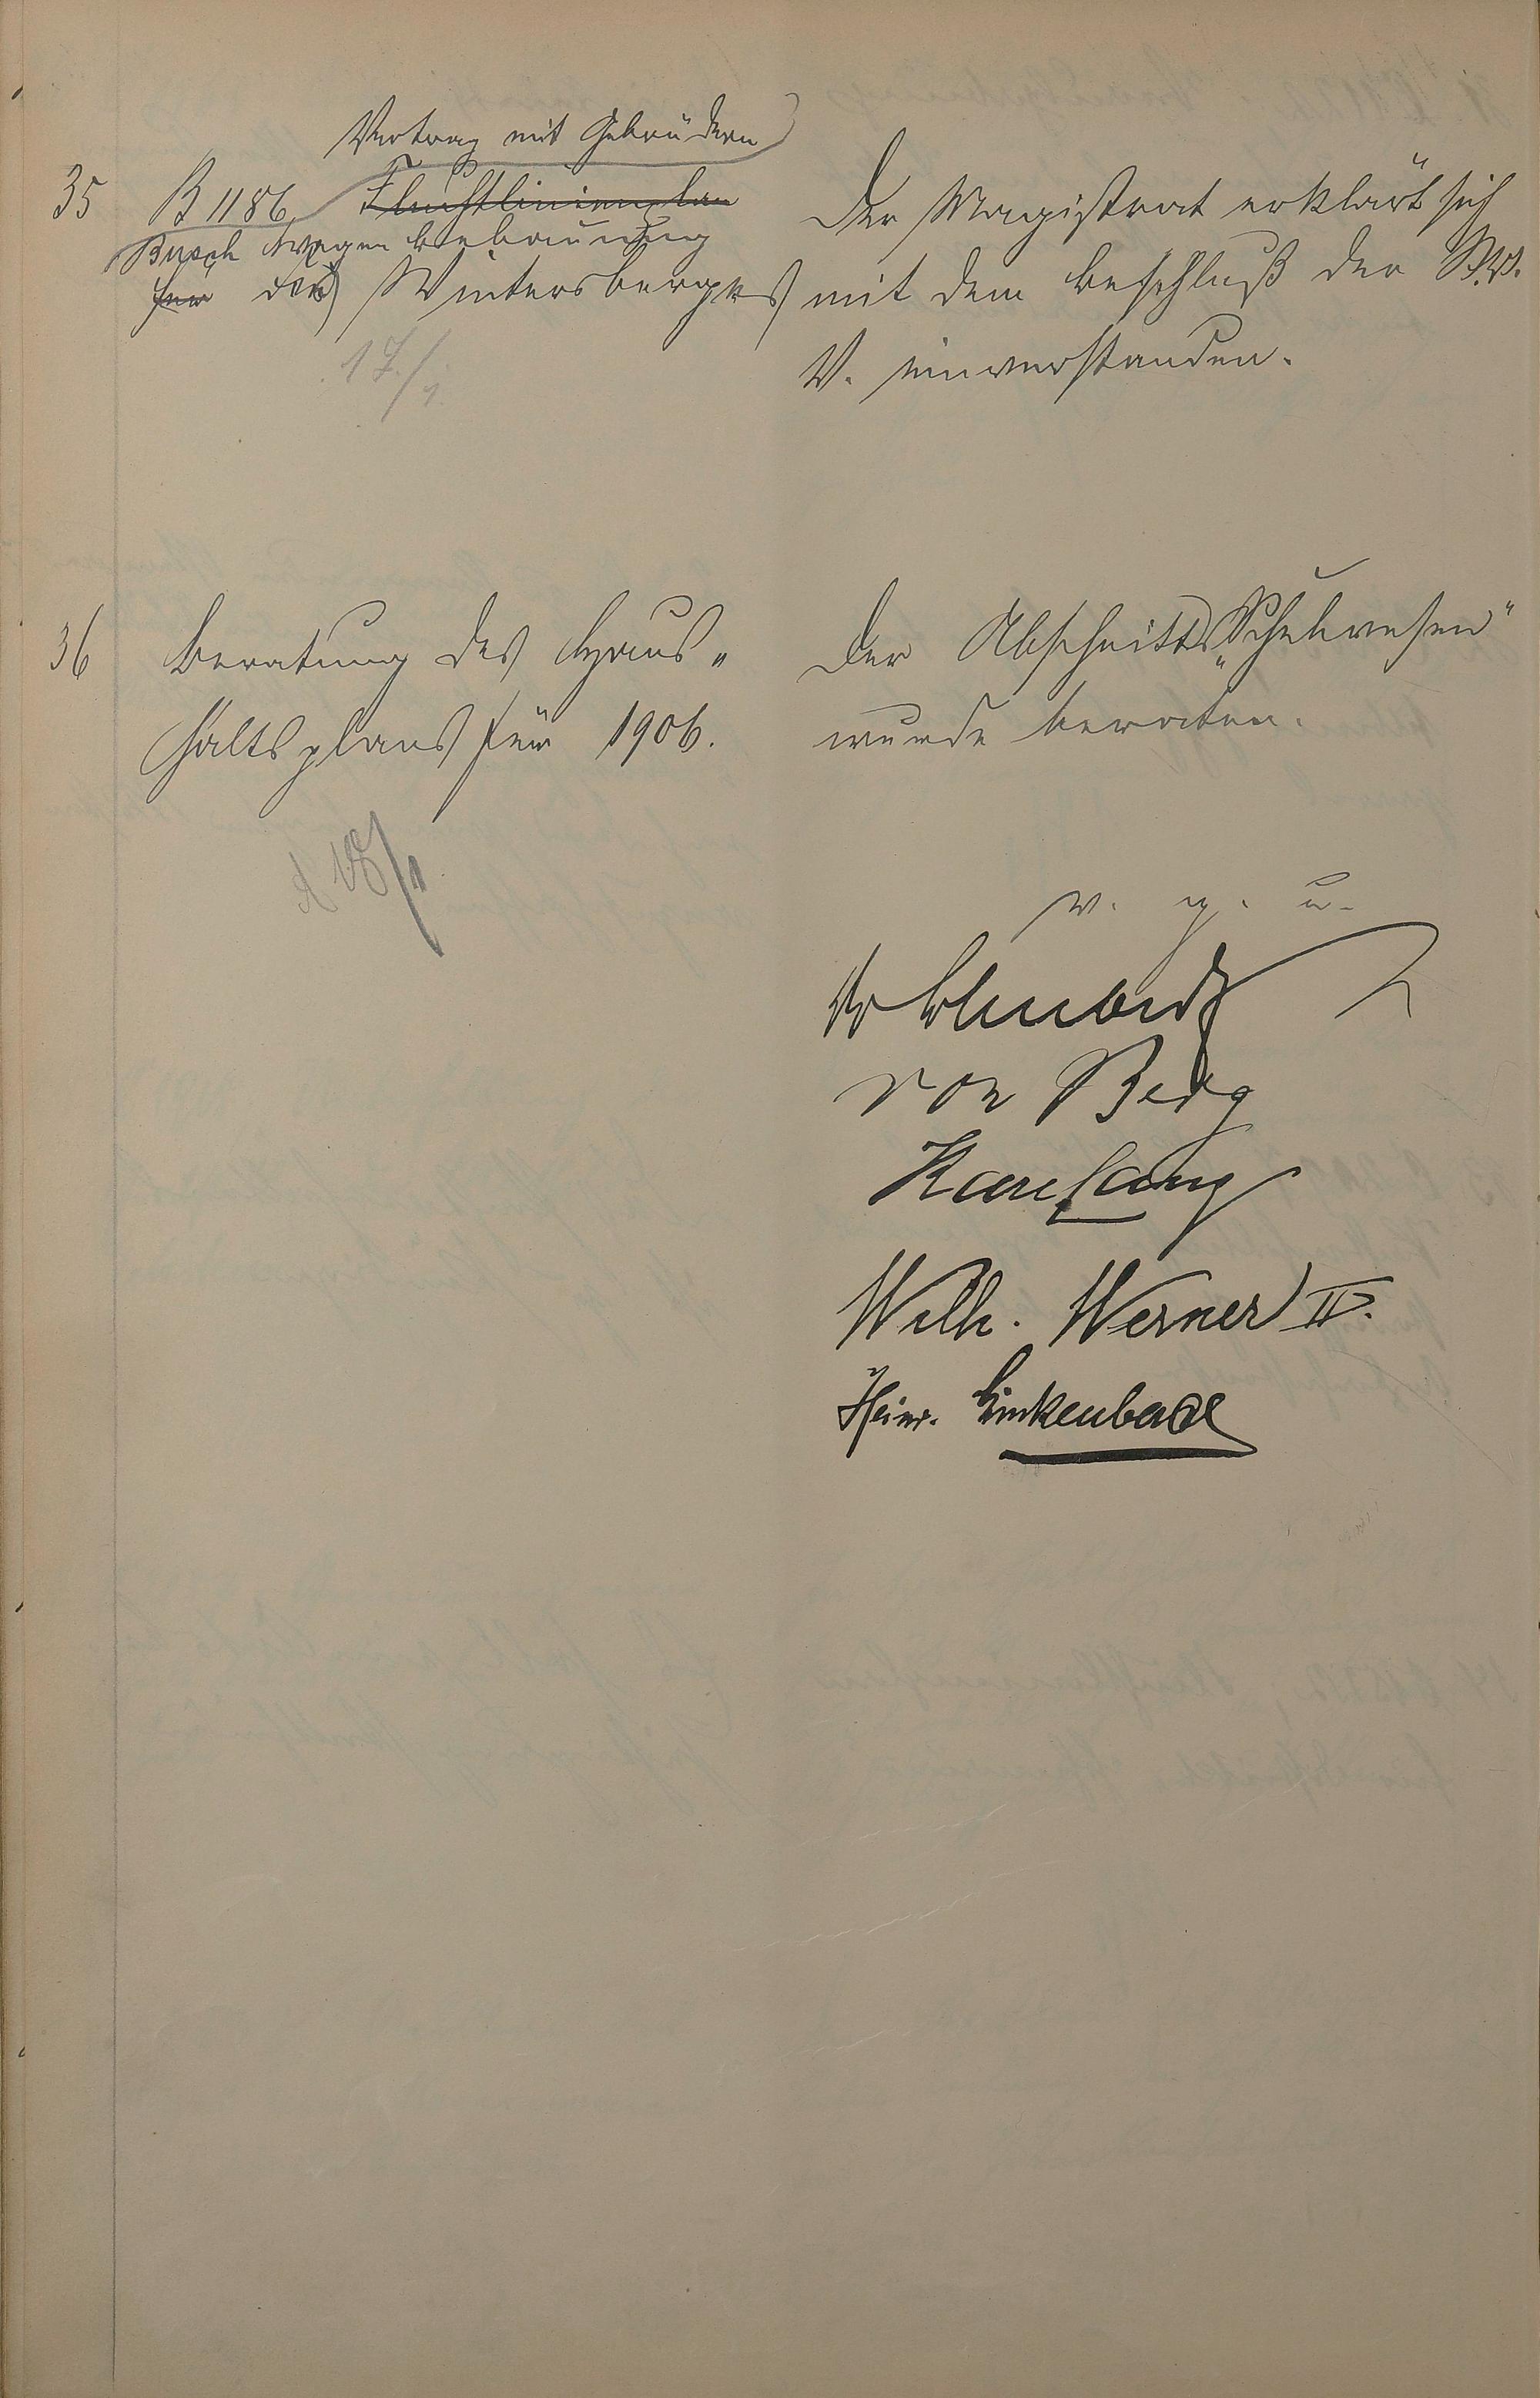 Vertrag mit Gebrüdern
35 B 1186. Fluchtlinienplan
Busch wegen Bebauung
für des Wintersberges
17./1.
Der Magistrat erklärt sich
mit dem Beschluß der St.V.
V. einverstanden.
36 Beratung des Haus-
haltsplans für 1906.
Der Abschnitt „Schulwesen“
wurde beraten.
v. g. u.
von Berg
Karl Lang
Wilh. Werner II.
Heinr. Linkenbach